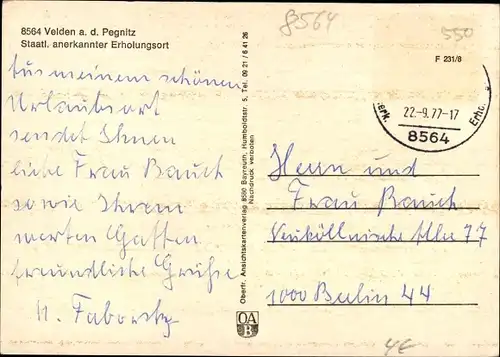 8564 Velden a. d. Pegnitz
Staatl. anerkannter Erholungsort
Aus meinem schönen
Urlaubsort
sendet Ihnen
liebe Frau Bauch
sowie Ihrem
werten Gatten
freundliche Grüße
N. Faborsky
Oberfr. Ansichtskartenverlag 8580 Bayreuth, Humboldtstr. 5, Tel. 09 21 / 6 41 26
Nachdruck verboten
OA
B
8564
550
F 231/8
erk.
22.-9.77-17
Erho
8564
Herrn und
Frau Bauch
Neuköllnische Allee 77
1000 Berlin 44
4€